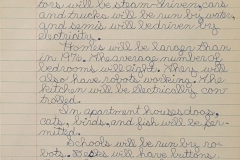 tors will be steam-driven, cars
and trucks will be run by water,
and semis will be driven by
electricity.
Homes will be larger than
in 1976. The average number of
bedrooms will be eight. They will
also have robots working. The
kitchen will be electrically con-
trolled.
In apartment houses dogs,
cats, birds, and fish will be per-
mitted.
Schools will be run by ro-
bots. will have buttons.